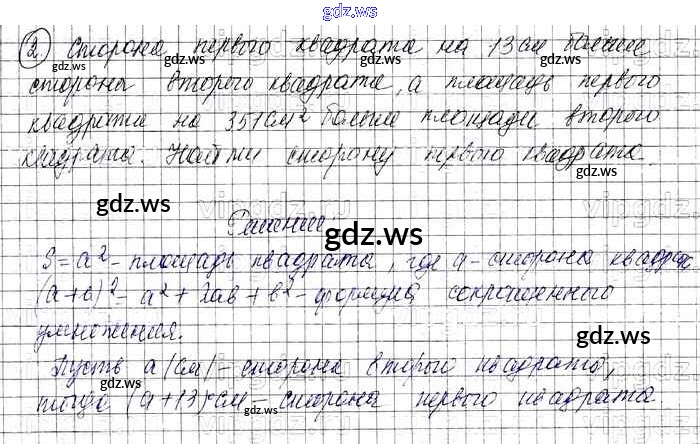 gdz.ws
② Сторона первого квадрата на 13 см больше
стороны второго квадрата, а площадь первого
квадрата на 351 см² больше площади второго
квадрата. Найти сторону первого квадрата.
Решение:
S = a² - площадь квадрата, где a - сторона квадрат.
(a+b)² = a² + 2ab + b² - формула сокращенного
умножения.
Пусть a (см) - сторона второго квадрата,
тогда (a+13) см - сторона первого квадрата.